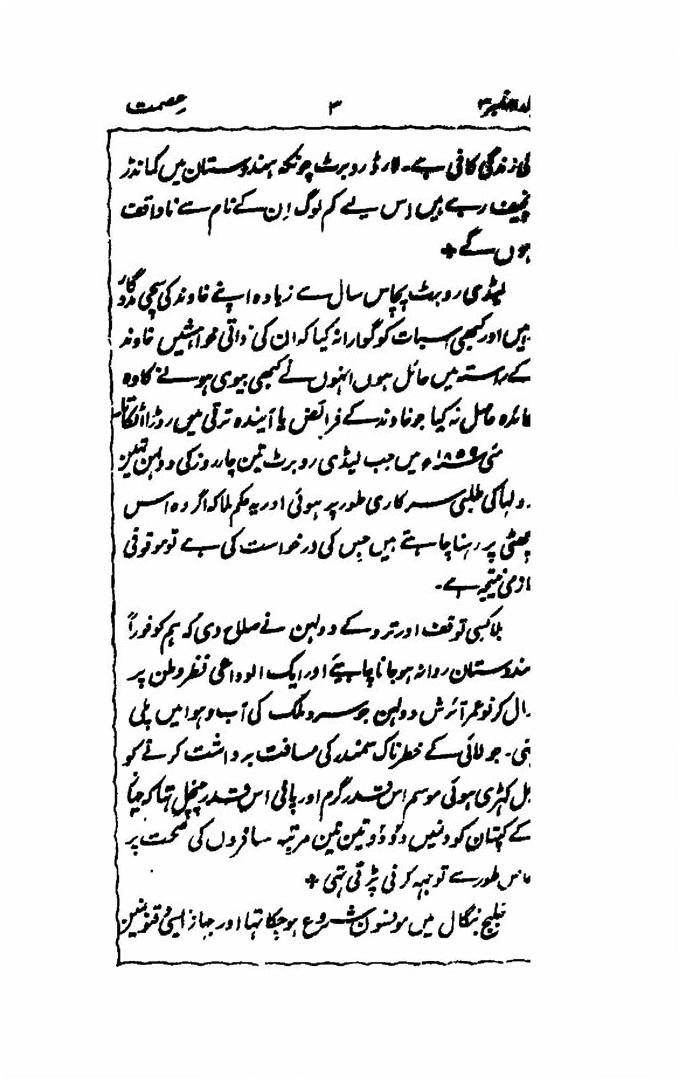 عصمت ۳ نمبر ۳
کی زندگی کافی ہے۔ لارڈ روبرٹ چونکہ ہندوستان میں کمانڈر
چیف رہے ہیں اس لیے کم لوگ اِن کے نام سے ناواقف
ہوں گے +
لیڈی روبرٹ پچاس سال سے زیادہ اپنے خاوند کی سچی مددگار
ہیں اور کبھی اسبات کو گوارا نہ کیا کہ ان کی ذاتی خواہشیں خاوند
کے رستہ میں حائل ہوں انہوں نے کبھی بیوی ہونے کا وہ
فائدہ حاصل نہ کیا جو خاوند کے فرائض یا آیندہ ترقی میں روڑا اٹکاتا
مئی ۱۸۵۹ء میں جب لیڈی روبرٹ تین چار روز کی دولہن تہیں
دولہا کی طلبی سرکاری طور پر ہوئی اور یہ حکم ملا کہ اگر وہ اس
چھٹی پر رہنا چاہتے ہیں جس کی درخواست کی ہے تو موقوفی
لازمی نتیجہ ہے۔
بلا کسی توقف اور تردد کے دولہن نے صلاح دی کہ ہم کو فوراً
ہندوستان روانہ ہو جانا چاہیئے اور ایک الوداعی نظر وطن پر
ڈال کر نو عمر آئرش دولہن جو سرد ملک کی آب و ہوا میں پلی
تہی۔ جولائی کے خطرناک سمندر کی مسافت برداشت کرنے کو
چل کہڑی ہوئی موسم اس قدر گرم اور پانی اس قدر تہا کہ جہاز
کے کپتان کو دنمیں دو دو تین تین مرتبہ مسافروں کی صحت پر
خاص طور سے توجہہ کرنی پڑتی تہی +
خلیج بنگال میں مونسون شروع ہو چکا تہا اور جہاز ایسی